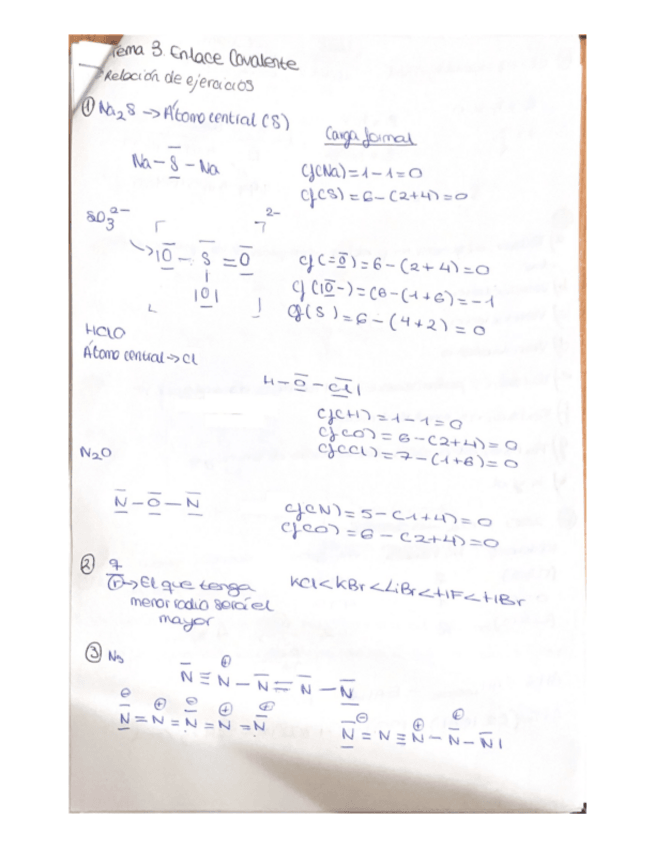 Tema 3. Enlace Covalente
Relación de ejercicios
① Na₂S → Átomo central (S)
Carga formal
Na – S – Na
cf(Na) = 1 – 1 = 0
cf(S) = 6 – (2+4) = 0
SO₃²⁻
2–
|O – S = O
|O|
cf(=O) = 6 – (2+4) = 0
cf(|O–) = (6 – (1+6) = –1
cf(S) = 6 – (4+2) = 0
HClO
Átomo central → Cl
H – O – Cl|
cf(H) = 1 – 1 = 0
cf(O) = 6 – (2+4) = 0
cf(Cl) = 7 – (1+6) = 0
N₂O
N – O – N
cf(N) = 5 – (1+4) = 0
cf(O) = 6 – (2+4) = 0
② q
r → El que tenga
menor radio será el
mayor
KCl < KBr < LiBr < HF < HBr
③ N₅
⊕
N ≡ N – N = N – N
⊖ ⊕ ⊖ ⊕ ⊕
N = N = N = N = N
⊖ ⊕ ⊕
N = N ≡ N – N – N|